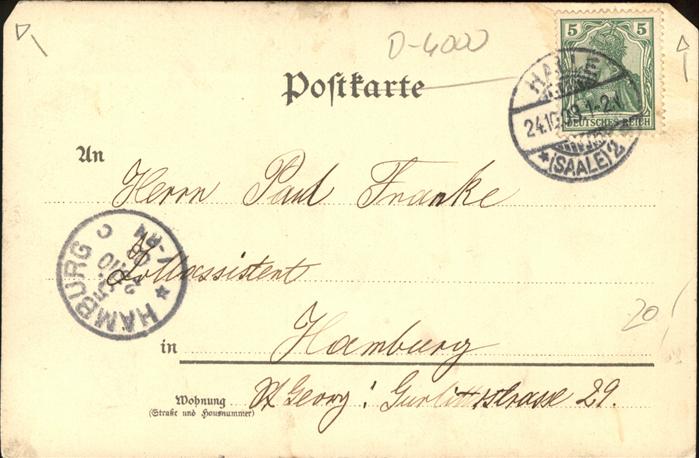 D-4000
Postkarte
5 5
DEUTSCHES REICH
HALLE
24.10.03.1-2N
*(SAALE)2
An
Herrn Paul Franke
Zollassistent
HAMBURG C
25.10.
7-8N
in Hamburg
Wohnung
(Straße und Hausnummer)
St Georg: Gurlittstrasse 29.
20